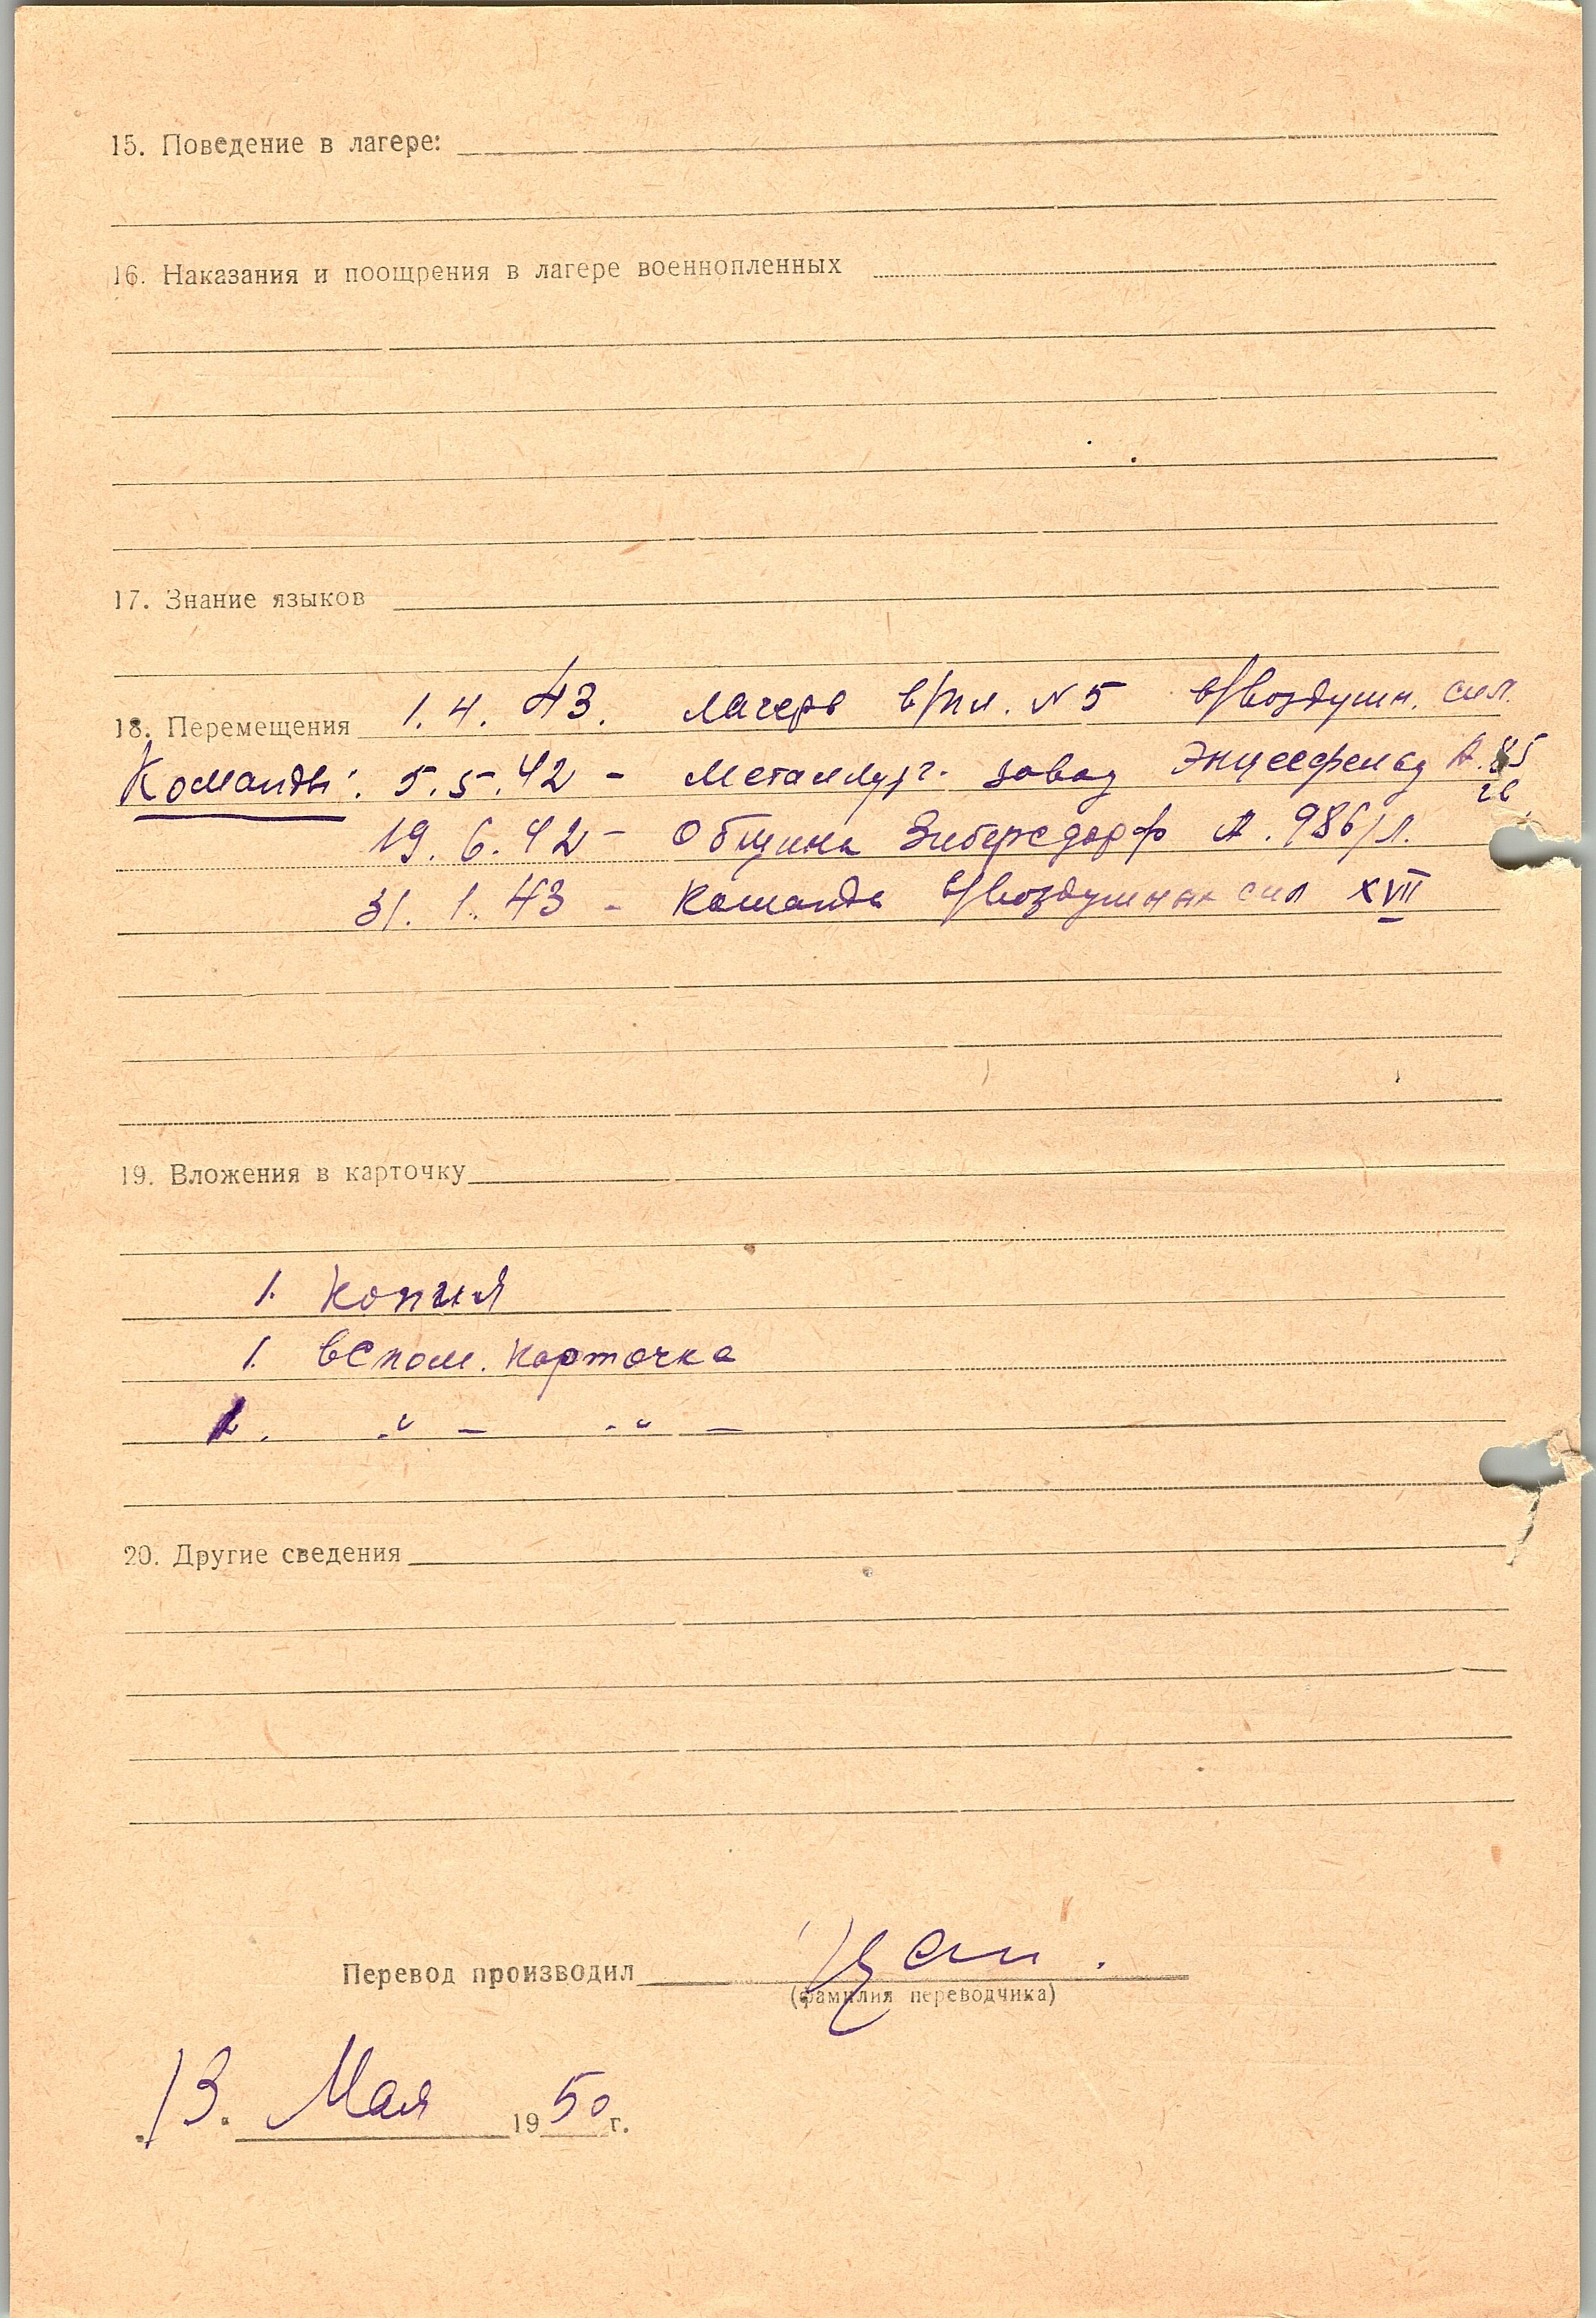 15. Поведение в лагере:
16. Наказания и поощрения в лагере военнопленных
17. Знание языков
18. Перемещения 1.4.43. лагерь в/пл. N 5 в/воздушн. сил.
Команды: 5.5.42 - Металлург. завод Энцесфельд А.
19.6.42 - Община Зиберсдорф А. 986/Л.
31.1.43 - Команда в/воздушных сил XVII
19. Вложения в карточку
1. Копия
1. вспом. карточка
-"- -"-
20. Другие сведения
Перевод производил
(фамилия переводчика)
13. Мая 1950 г.